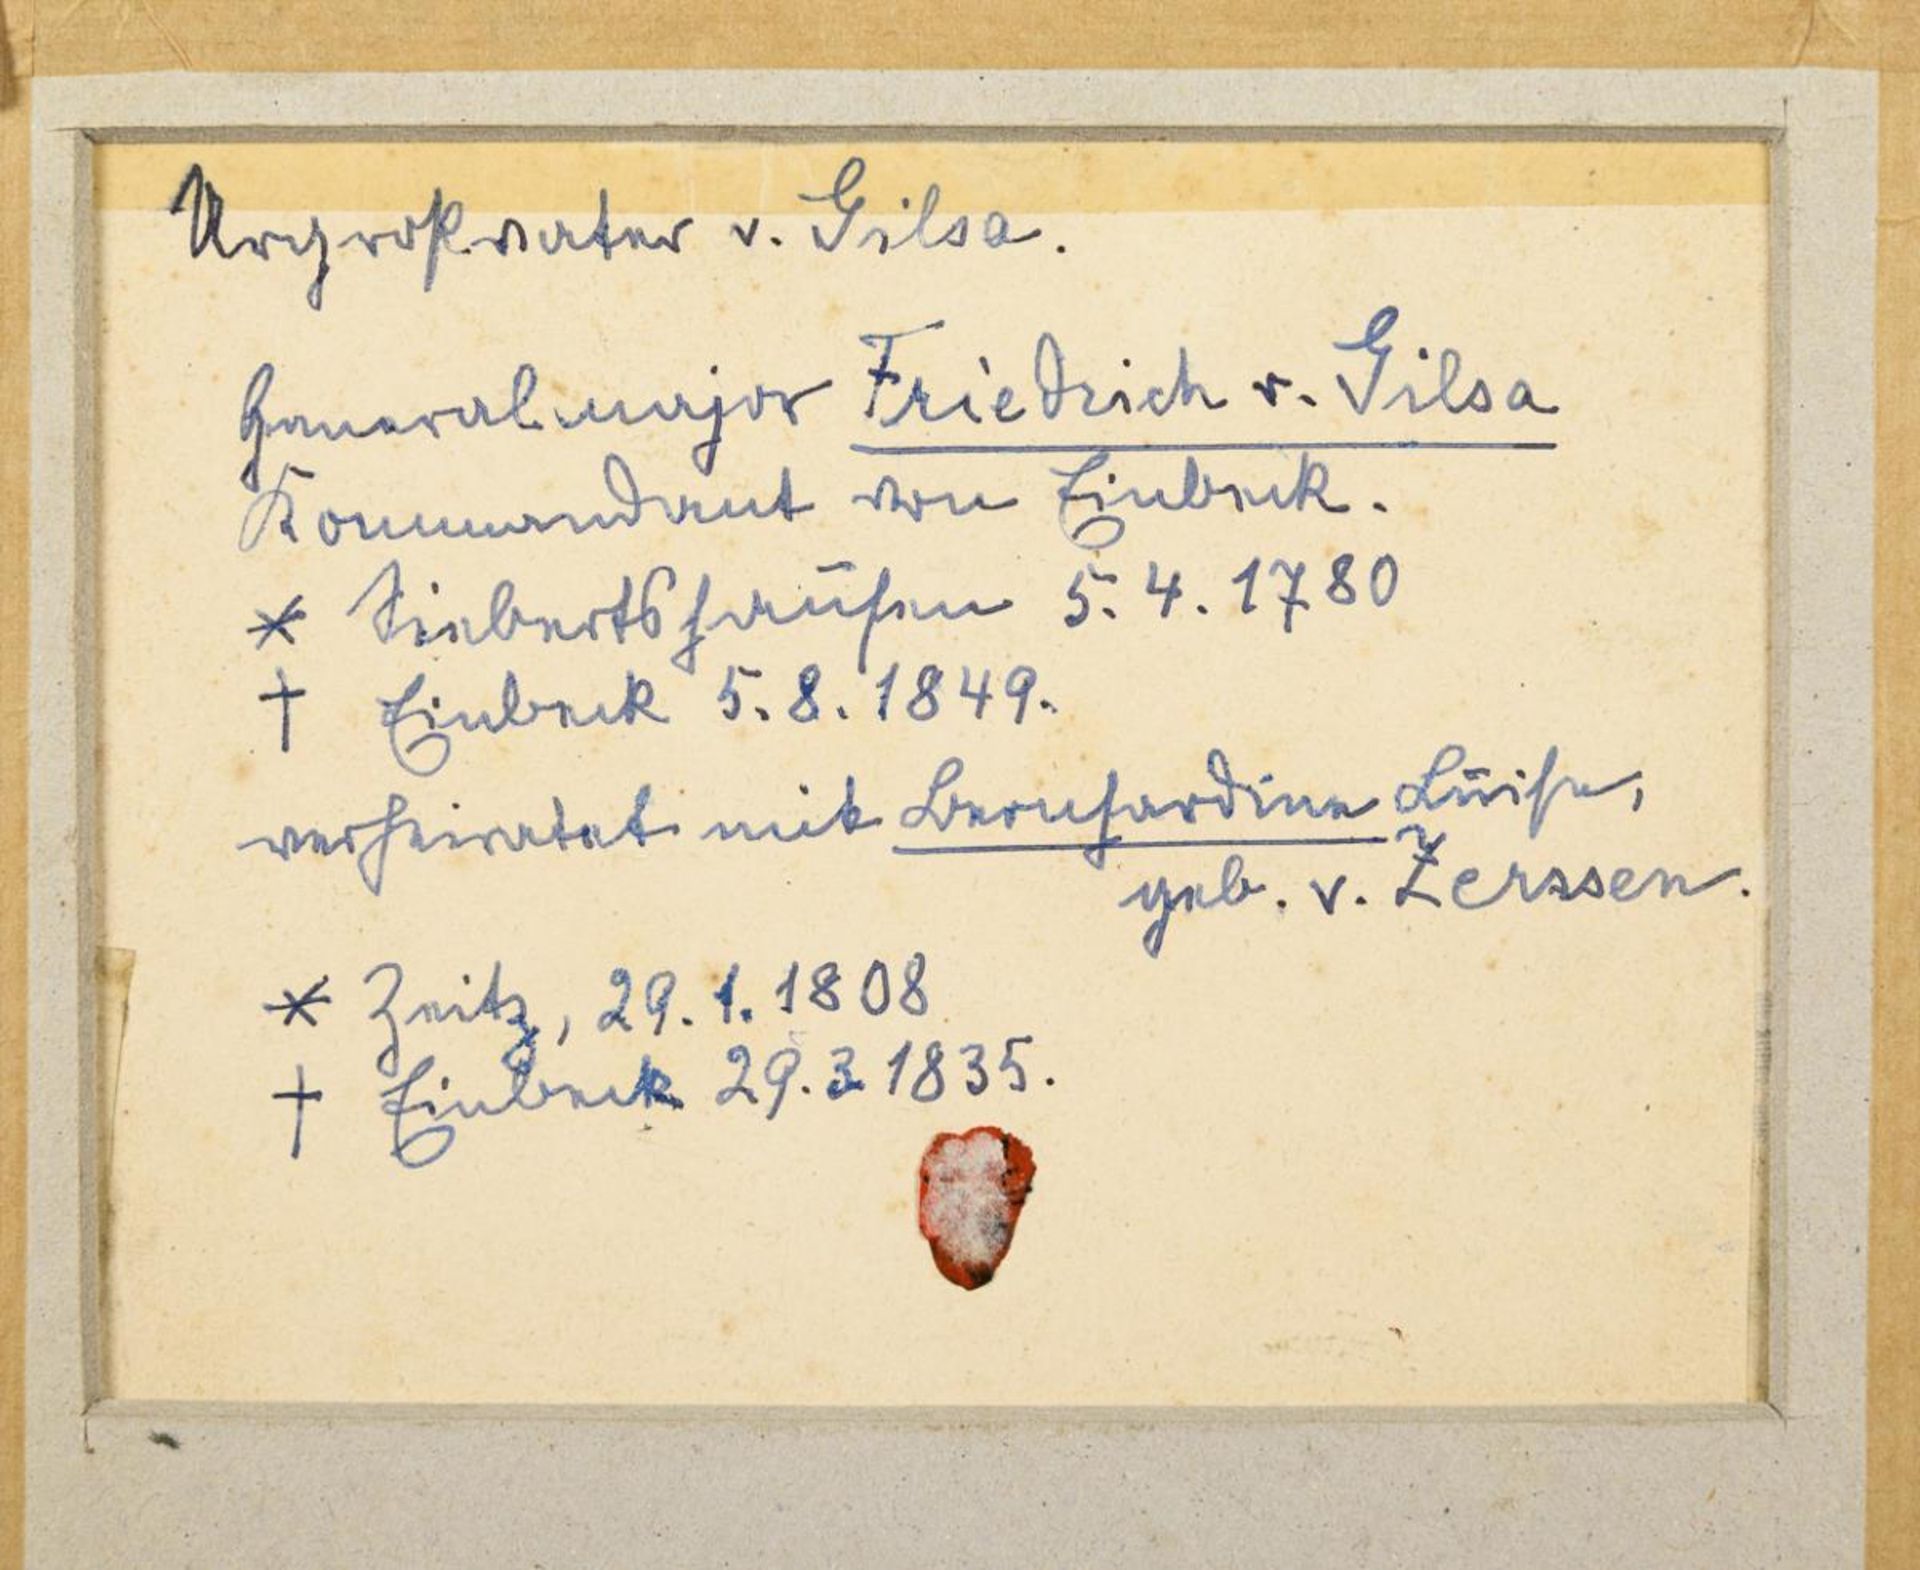 Urgroßvater v. Gilsa.
Generalmajor Friedrich v. Gilsa
Kommandant von Einbeck.
* Siebertshausen 5.4.1780
† Einbeck 5.8.1849.
verheiratet mit Bernhardine Luise,
geb. v. Zerssen.
* Zeitz, 29.1.1808
† Einbeck 29.3 1835.